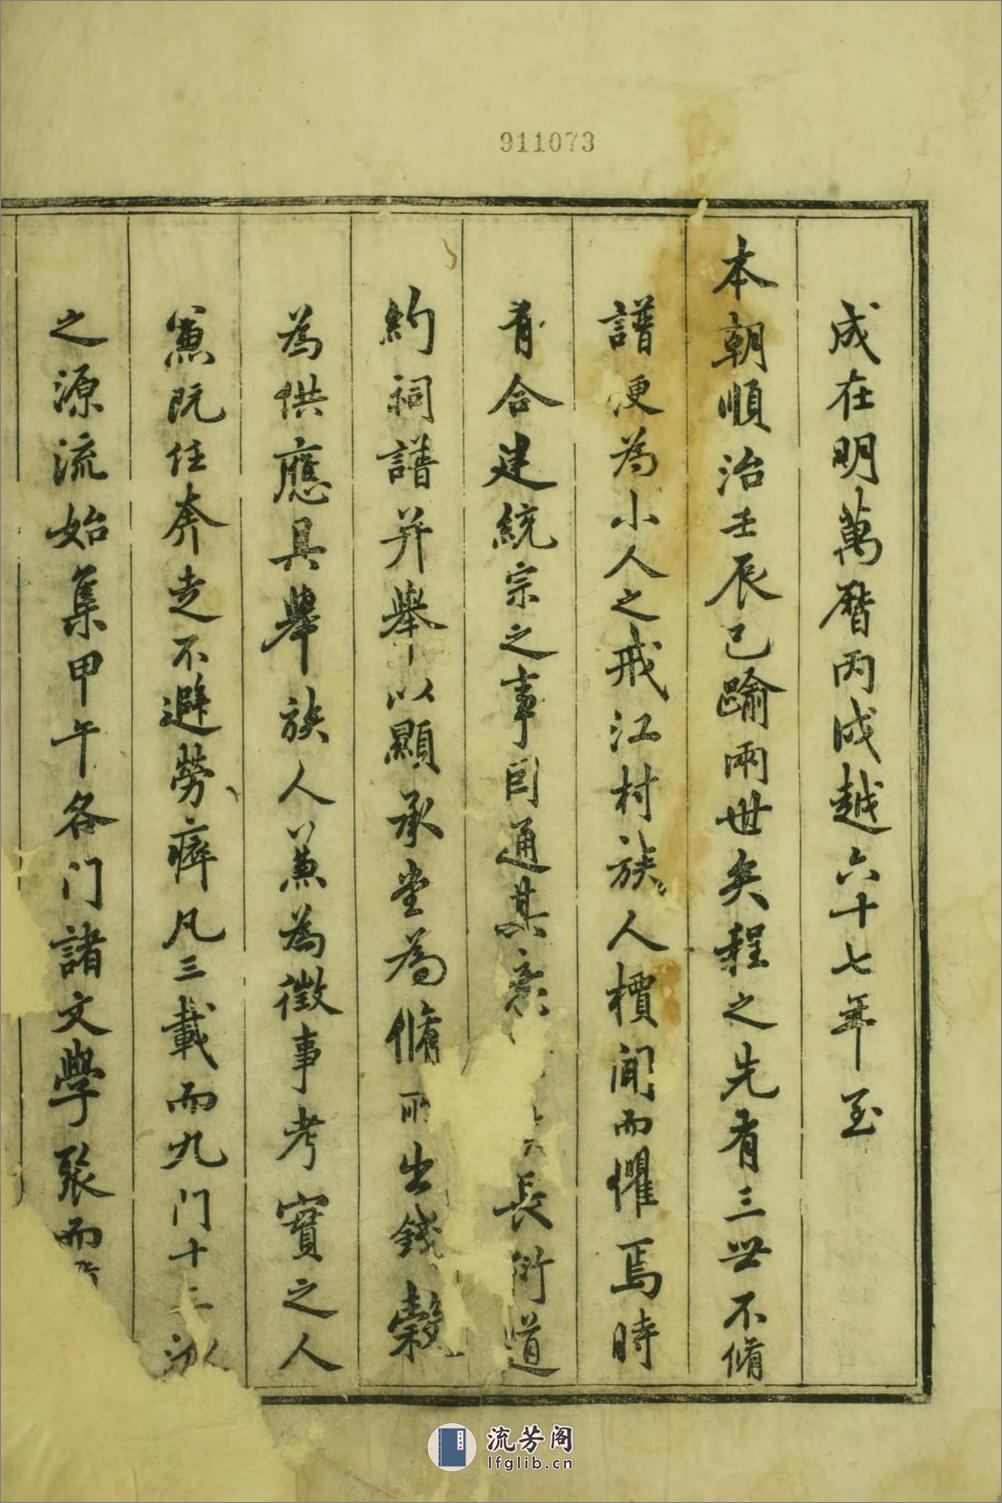 911073
成在明萬曆丙戌越六十七年至
本朝順治壬辰已踰兩世矣程之先有三世不脩
譜便為小人之戒江村族人櫝聞而懼焉時
有合建統宗之事因通其長衍道
約祠譜并舉以顯承堂為脩所出錢穀
為供應具舉族人兼為徵事考實之人
既任奔走不避勞瘁凡三載而九門十二派
之源流始集甲午各門諸文學張而
流芳阁
lfglib.cn